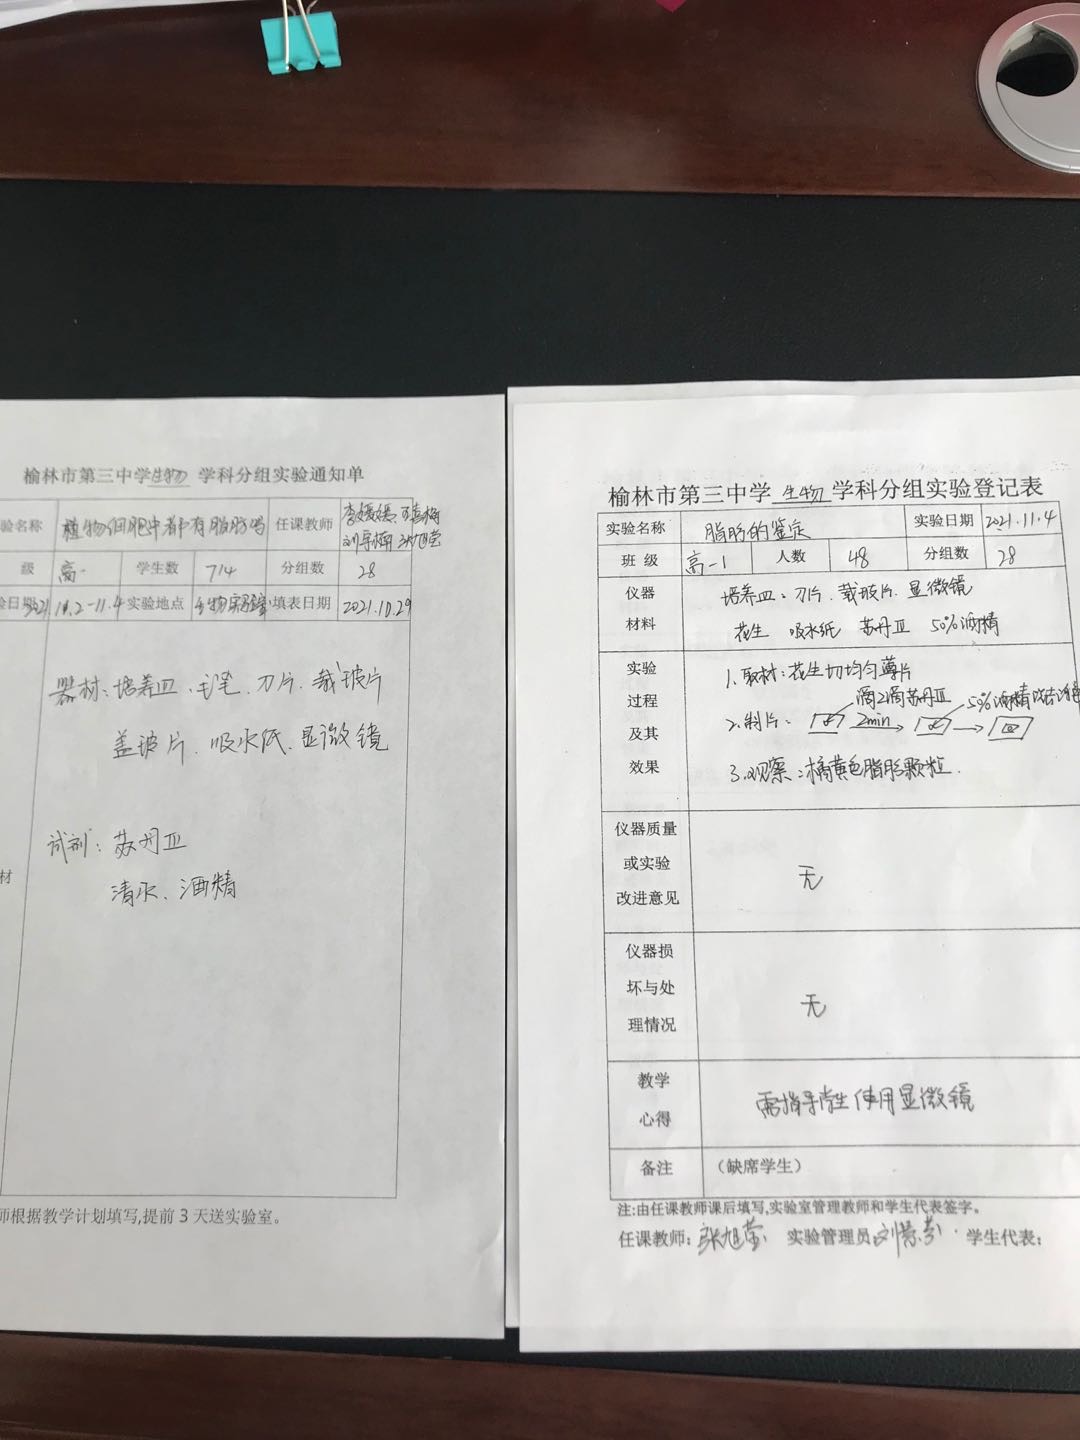 榆林市第三中学生物 学科分组实验通知单
验名称 植物细胞中都有脂肪吗 任课教师
级 高一 学生数 714 分组数 28
验日期 2021 11.2-11.4 实验地点 生物实验室 填表日期 2021.10.29
器材：培养皿、毛笔、刀片、载玻片
盖玻片、吸水纸、显微镜
试剂：苏丹Ⅲ
清水、酒精
材
师根据教学计划填写,提前 3 天送实验室。
榆林市第三中学 生物 学科分组实验登记表
实验名称 脂肪的鉴定 实验日期 2021.11.4
班 级 高一1 人数 48 分组数 28
仪器 培养皿、刀片、载玻片、显微镜
材料 花生 吸水纸 苏丹Ⅲ 50%酒精
实验 1、取材：花生切均匀薄片
过程 滴2滴苏丹Ⅲ 50%酒精
及其 2、制片： 2min
效果 3、观察：橘黄色脂肪颗粒.
仪器质量
或实验 无
改进意见
仪器损
坏与处 无
理情况
教学 需指导学生使用显微镜
心得
备注 （缺席学生）
注:由任课教师课后填写,实验室管理教师和学生代表签字。
任课教师：张旭莹 实验管理员: 学生代表：